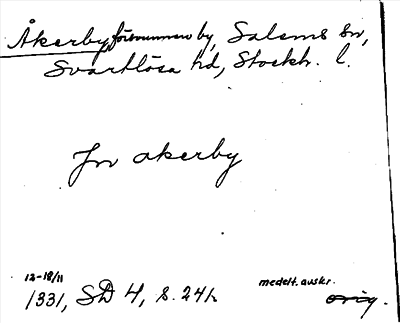 Åkerby, försvunnen by, Salems sn,
Svartlösa hd, Stockh. l.
Jn akerby
12-18/11
1331, SD 4, s. 241.
medelt. avskr.
orig.